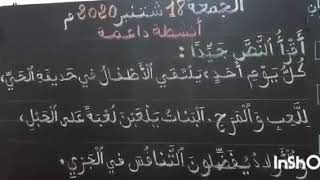 الجمعة 18 شتنبر 2020 م
أنشطة داعمة
أَقْرَأُ النَّصَّ جَيِّدًا :
كُلَّ يَوْمِ أَحَدٍ، يَلْتَقِي الْأَطْفَالُ فِي حَدِيقَةِ الْحَيِّ،
لِلَّعِبِ وَالْمَرَحِ. الْبَنَاتُ يَلْعَبْنَ لُعْبَةً عَلَى الْحَبْلِ،
يُفَضِّلُونَ التَّنَافُسَ فِي الْجَرْيِ.
InShO